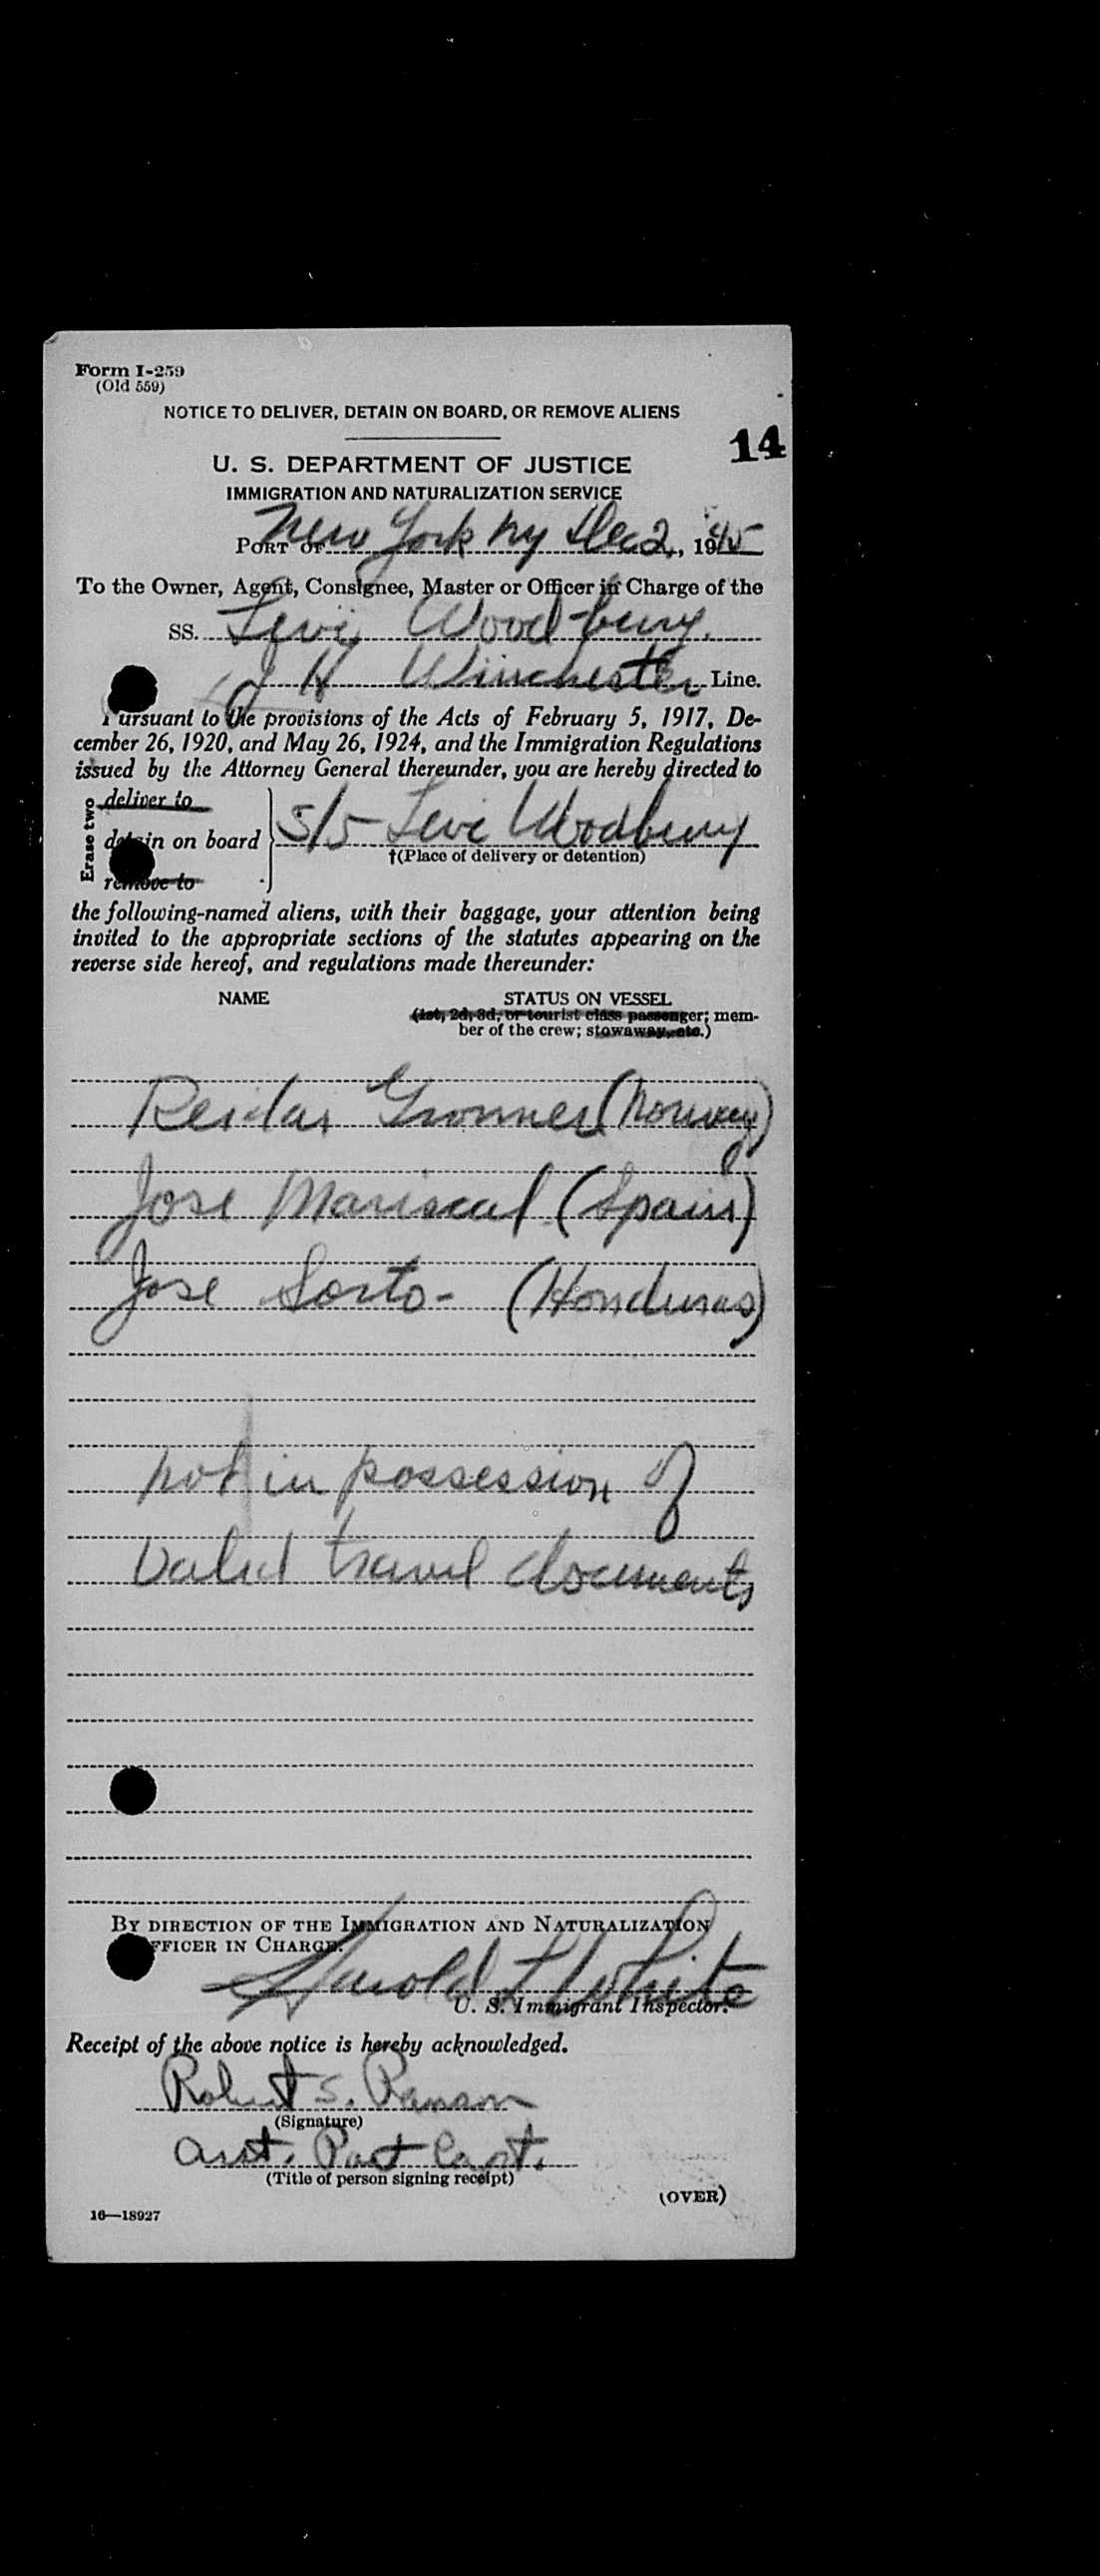 Form I-259
(Old 559)
NOTICE TO DELIVER, DETAIN ON BOARD, OR REMOVE ALIENS
14
U. S. DEPARTMENT OF JUSTICE
IMMIGRATION AND NATURALIZATION SERVICE
PORT OF New York Ny Dec 2, 1945
To the Owner, Agent, Consignee, Master or Officer in Charge of the
SS. Levi Woodbury.
J H Winchester Line.
Pursuant to the provisions of the Acts of February 5, 1917, De-
cember 26, 1920, and May 26, 1924, and the Immigration Regulations
issued by the Attorney General thereunder, you are hereby directed to
Erase two
deliver to
detain on board
remove to
S/S Levi Woodbury
†(Place of delivery or detention)
the following-named aliens, with their baggage, your attention being
invited to the appropriate sections of the statutes appearing on the
reverse side hereof, and regulations made thereunder:
NAME STATUS ON VESSEL
(1st, 2d, 3d, or tourist class passenger; mem-
ber of the crew; stowaway, etc.)
Reidar Gronner (Norway)
Jose Mariscal (Spain)
Jose Sorto - (Honduras)
not in possession of
valid travel documents
BY DIRECTION OF THE IMMIGRATION AND NATURALIZATION
OFFICER IN CHARGE.
Harold White
U. S. Immigrant Inspector.
Receipt of the above notice is hereby acknowledged.
Robert S.
(Signature)
Asst. Port Capt.
(Title of person signing receipt)
(OVER)
16—18927